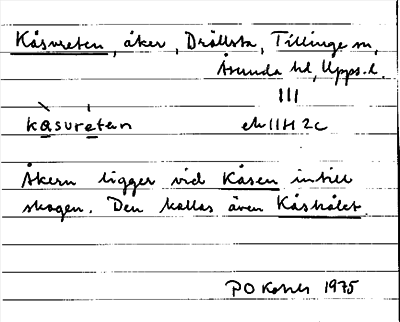 Kåsvreten, åker, Drällsta, Tillinge sn,
Åsunda hd, Upps. l.
III
kasvretan ek 11H 2c
Åkern ligger vid Kåsen intill
skogen. Den kallas även Kåshålet.
1975